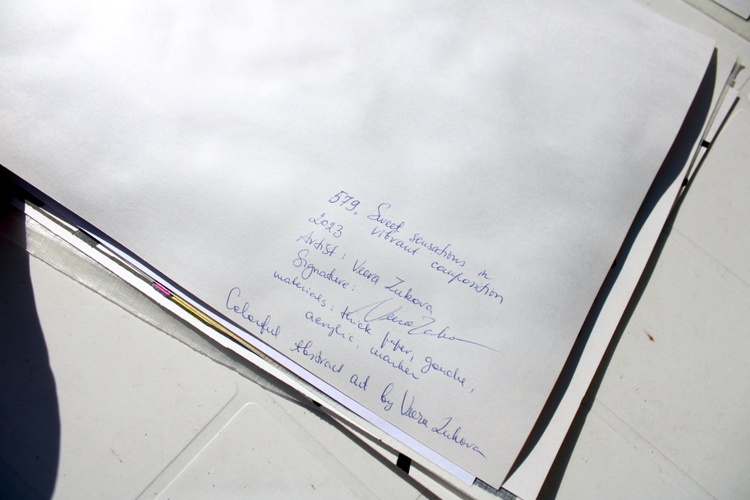 579. Sweet sensations in
vibrant composition
2023
Artist: Viera Zukova
Signature:
materials: thick paper, gouache,
acrylic, marker
Colorful Abstract art by Viera Zukova